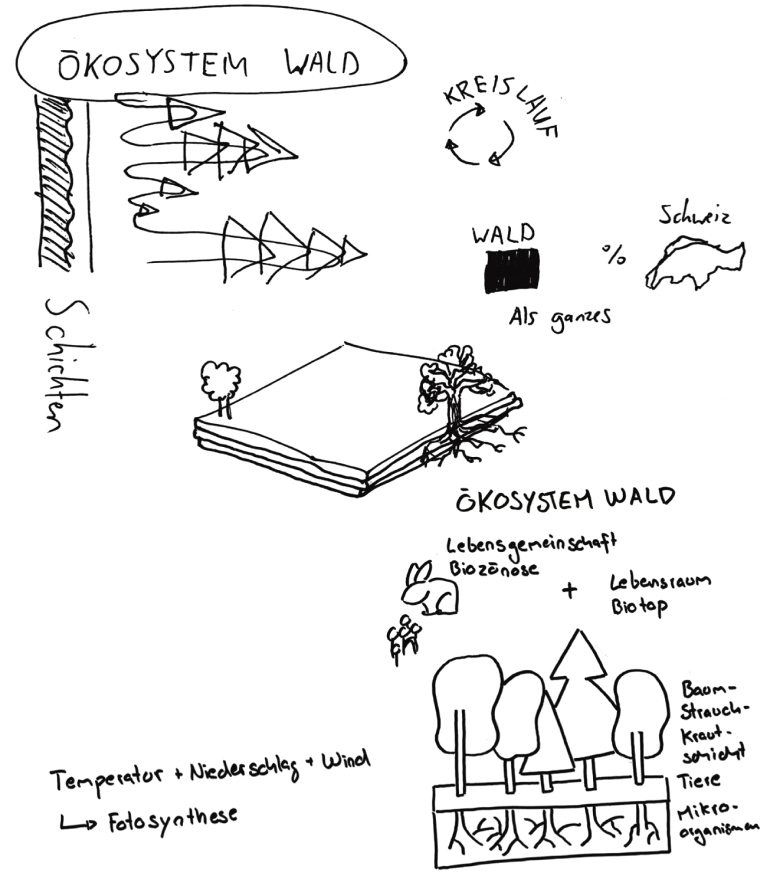 ÖKOSYSTEM WALD
KREISLAUF
Schweiz
WALD
%
Als ganzes
Schichten
ÖKOSYSTEM WALD
Lebensgemeinschaft
Biozönose
+
Lebensraum
Biotop
Baum-
Strauch-
Kraut-
schicht
Tiere
Mikro-
organismen
Temperatur + Niederschlag + Wind
↳ Fotosynthese